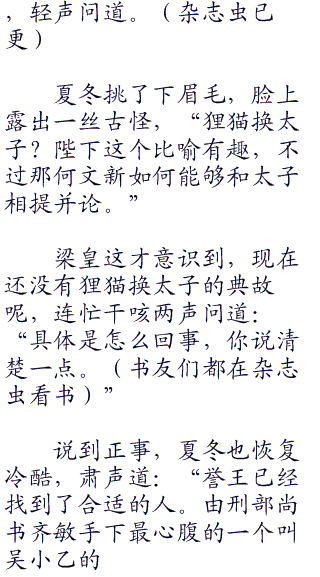 ，轻声问道。（杂志虫已
更）
夏冬挑了下眉毛，脸上
露出一丝古怪，“狸猫换太
子？陛下这个比喻有趣，不
过那何文新如何能够和太子
相提并论。”
梁皇这才意识到，现在
还没有狸猫换太子的典故
呢，连忙干咳两声问道：
“具体是怎么回事，你说清
楚一点。（书友们都在杂志
虫看书）”
说到正事，夏冬也恢复
冷酷，肃声道：“誉王已经
找到了合适的人。由刑部尚
书齐敏手下最心腹的一个叫
吴小乙的